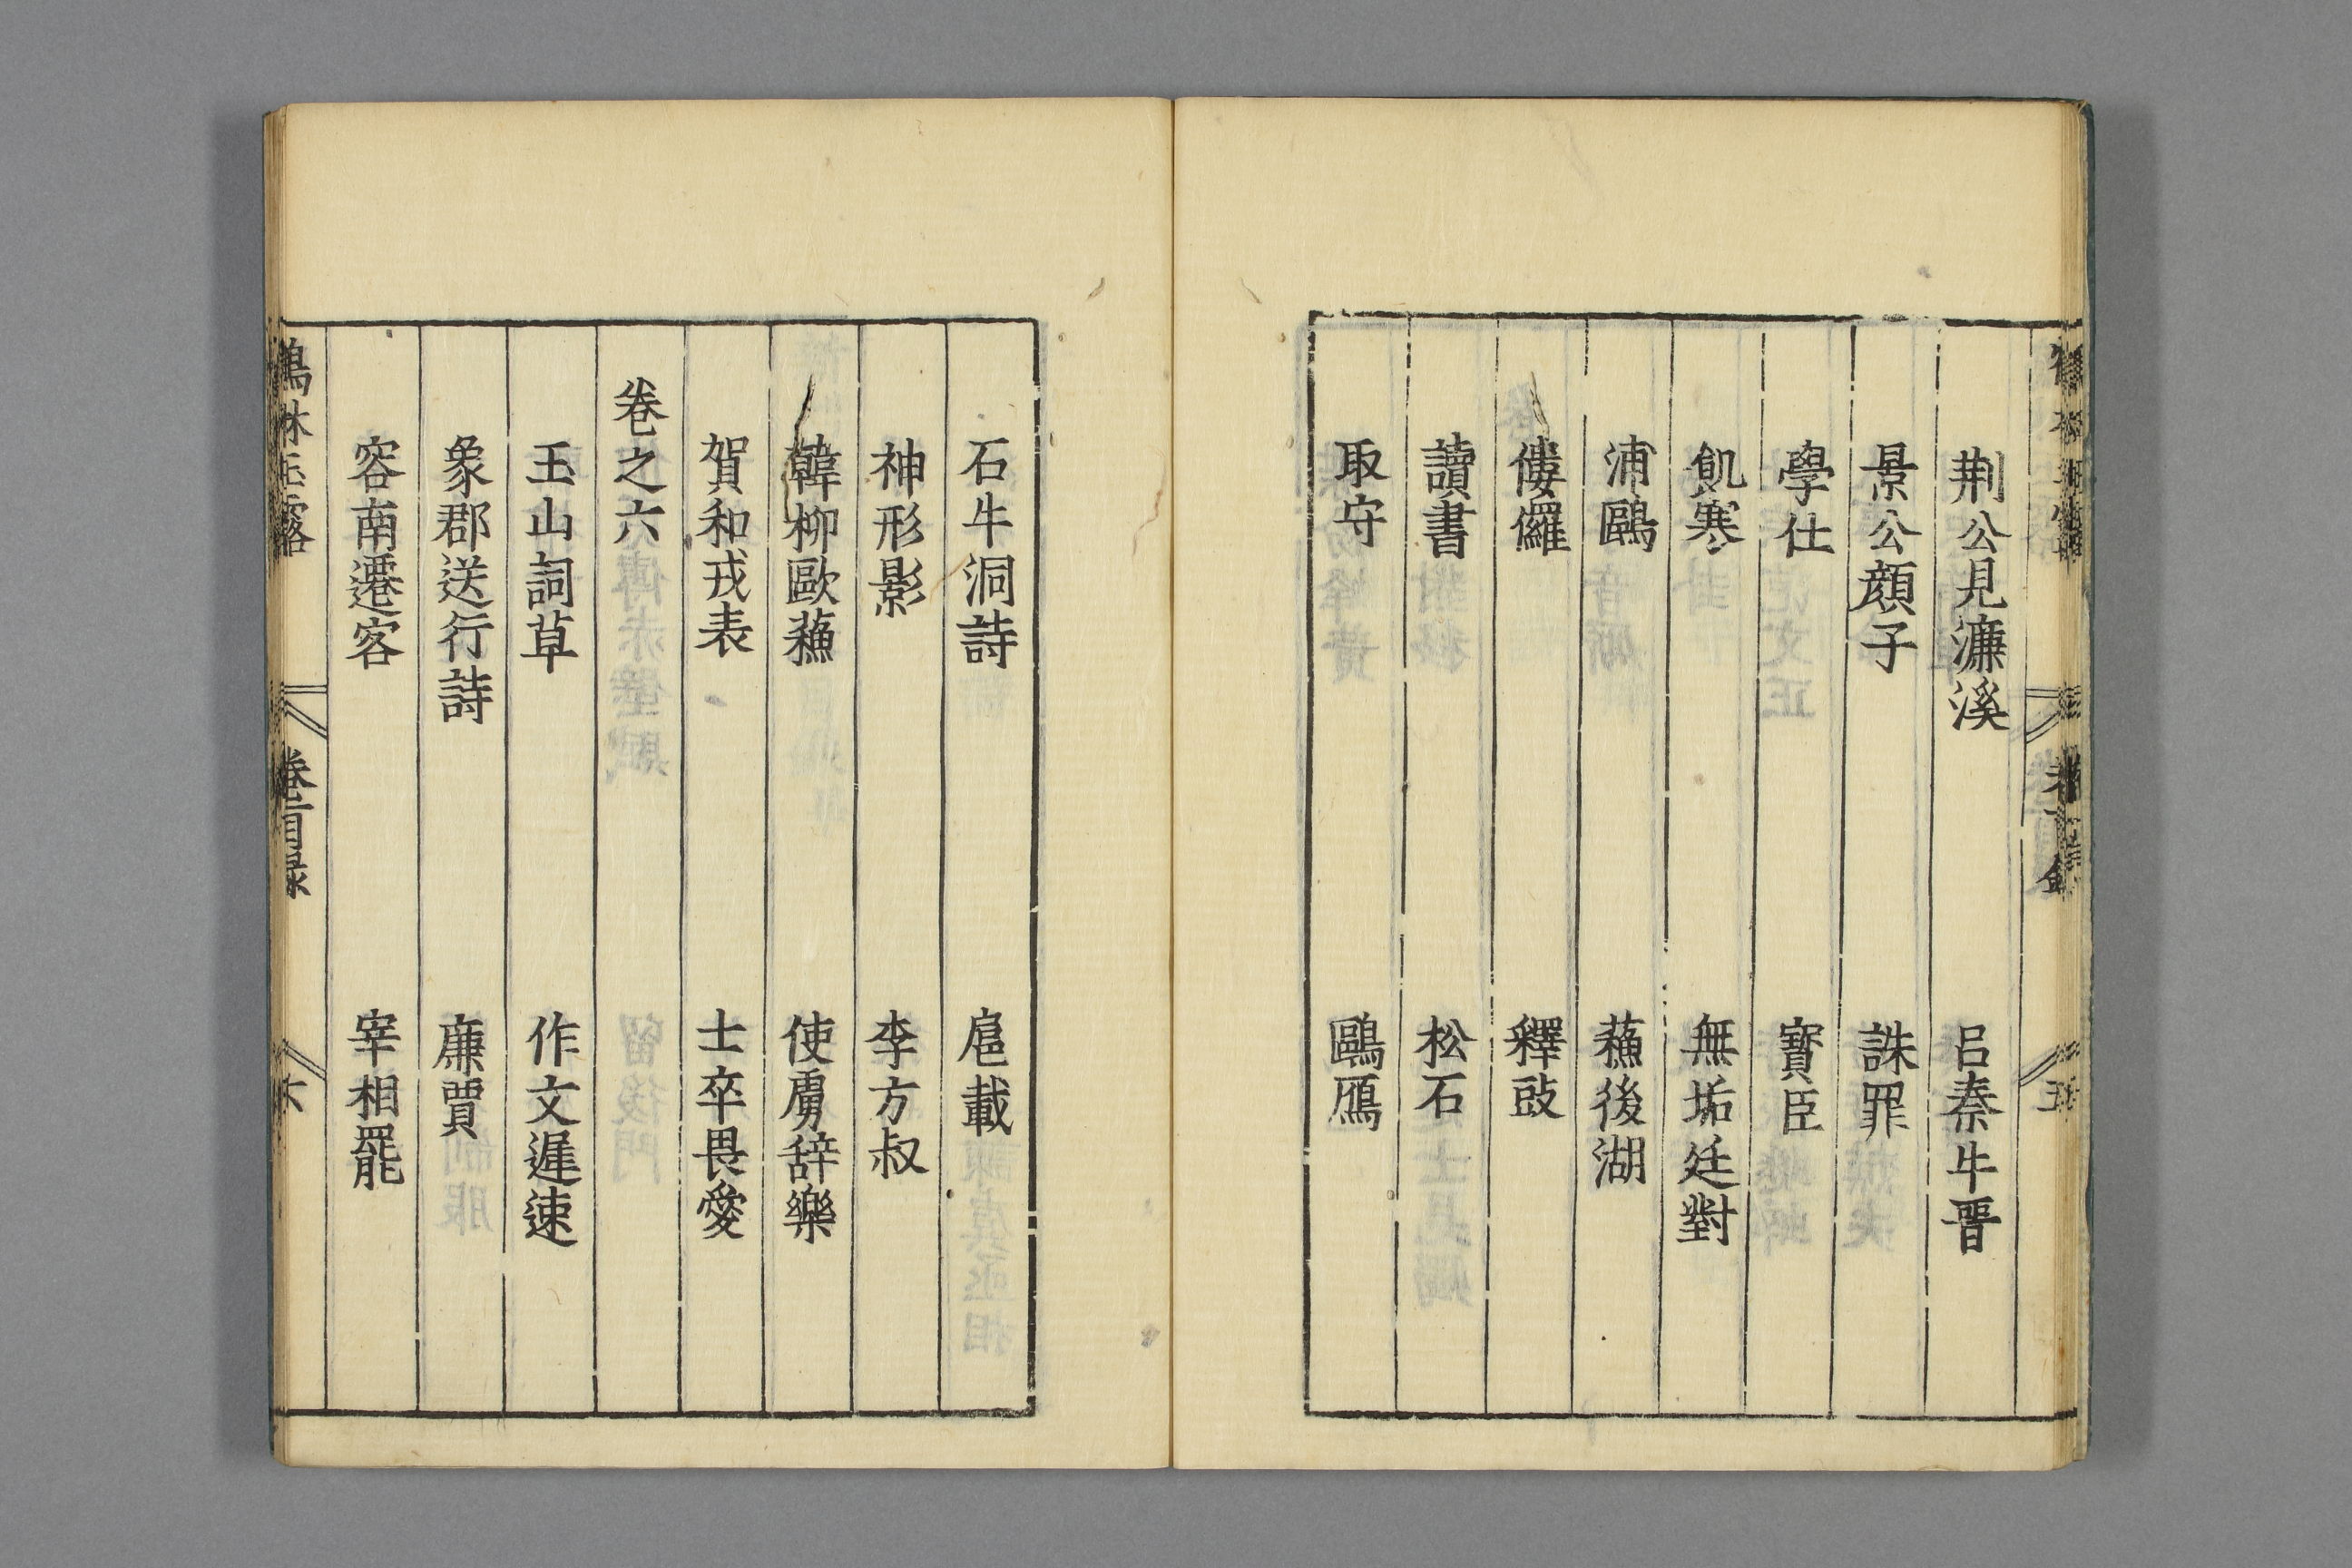 荆公見濂溪　呂秦牛晉
景公顔子　誅罪
學仕　寳臣
飢寒　無垢廷對
浦鷗　蘓後湖
僂儸　釋䜴
讀書　松石
取守　鷗鴈
石牛洞詩　扈載
神形影　李方叔
韓柳歐蘓　使虜辭樂
賀和戎表　士卒畏愛
卷之六
玉山詞草　作文遲速
象郡送行詩　廉賈
容南遷客　宰相罷
鶴林玉露　卷首目録　六